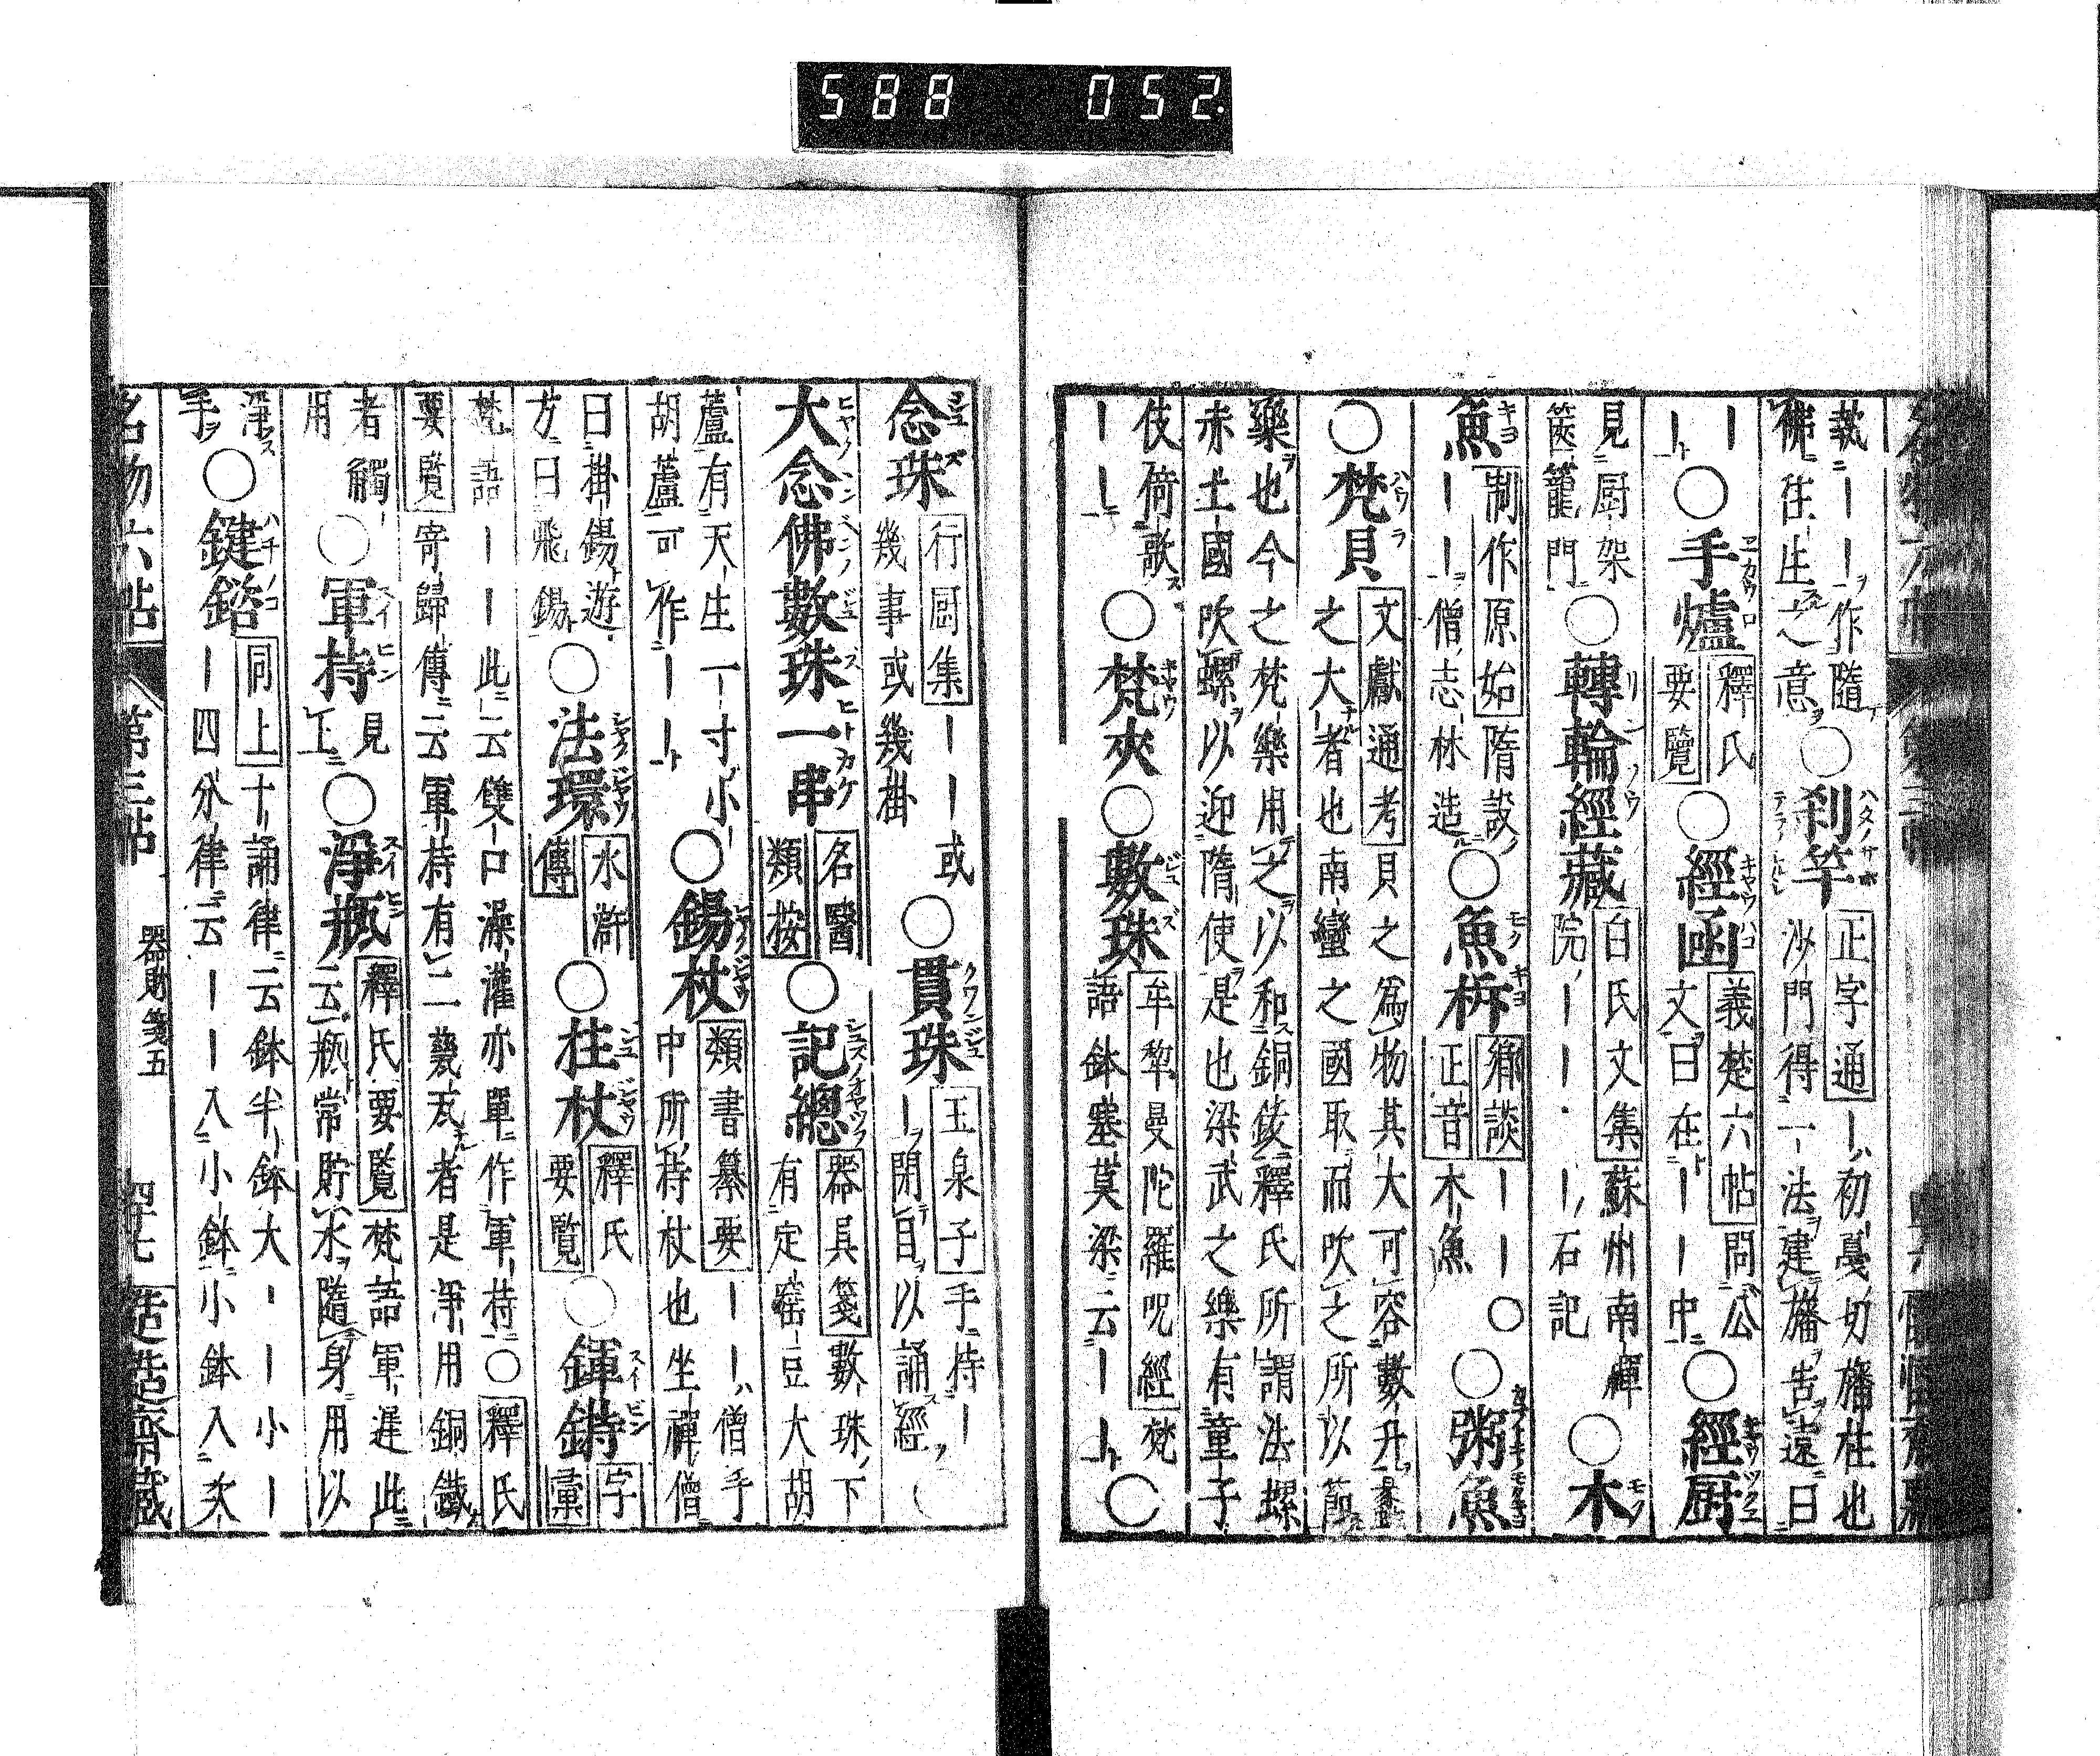 588 052.
執ニ――ヲ作隨
佛往生之意ヲ○刹竿正字通―ハ初戞切旛柱也
沙門得一法建旛告遠曰
――ト○手爐釋氏要覽○經函義楚六帖問公
文曰在――中○經厨
見厨架
篋籠門○轉輪經藏白氏文集蘇州南禪
院――――石記○木
魚制作原始隋設
――僧志林造○魚柝鄕談――○
正音木魚○粥魚
○梵貝文獻通考貝之爲物其大可容數升
之大者也南蠻之國取而吹之所以節
樂也今之梵樂用之以和銅鈸釋氏所謂法螺
赤土國吹螺以迎隋使是也梁武之樂有童子
伎倚歌
――○梵夾○數珠牟犂曼陀羅呪經梵
語鉢塞莫梁云――ト○
念珠行厨集――或
幾事或幾掛○貫珠王泉子手持―
―閉目以誦經
大念佛數珠一串名醫類按○記總器具箋數珠下
有定窰豆大胡
蘆有天生一寸小
胡蘆可作――ト○錫杖類書纂要――ハ僧手
中所持杖也坐禪僧
曰掛錫遊
方曰飛錫○法環水滸傳○柱杖釋氏要覽○鍕鍗字彙
梵語――此云雙口澡灌亦單作軍持○釋氏
要覽寄歸傳云軍持有二甆瓦者是淨用銅鐵
者觸
用○軍持見上○淨瓶釋氏要覽梵語軍遲此
云瓶常貯水隨身用以
淨
手○鍵鎔同上十誦律云鉢半鉢大――小―
―四分律云――入小鉢小鉢入次
名物六帖 第三帖 器財箋五 四十七